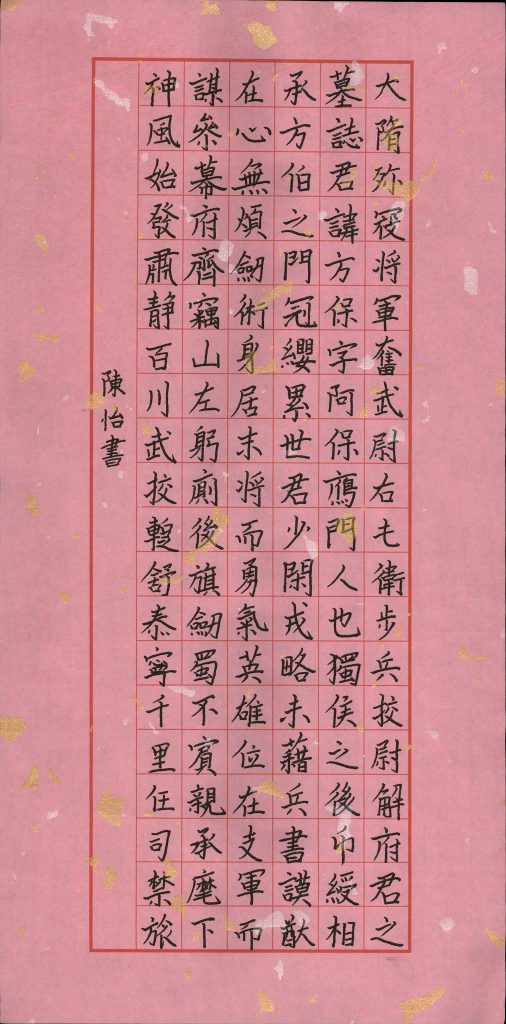 大隋殄寇将軍奮武尉右屯衛步兵挍尉解府君之
墓誌君諱方保字阿保鴈門人也獨侯之後印綬相
承方伯之門冠纓累世君少閑戎略未藉兵書謨猷
在心無煩劒術身居末将而勇氣英雄位在支軍而
謀叅幕府齊竊山左躬廁後旗劒蜀不賓親承麾下
神風始發肅静百川武挍蹔舒泰寧千里任司禁旅
陳怡書